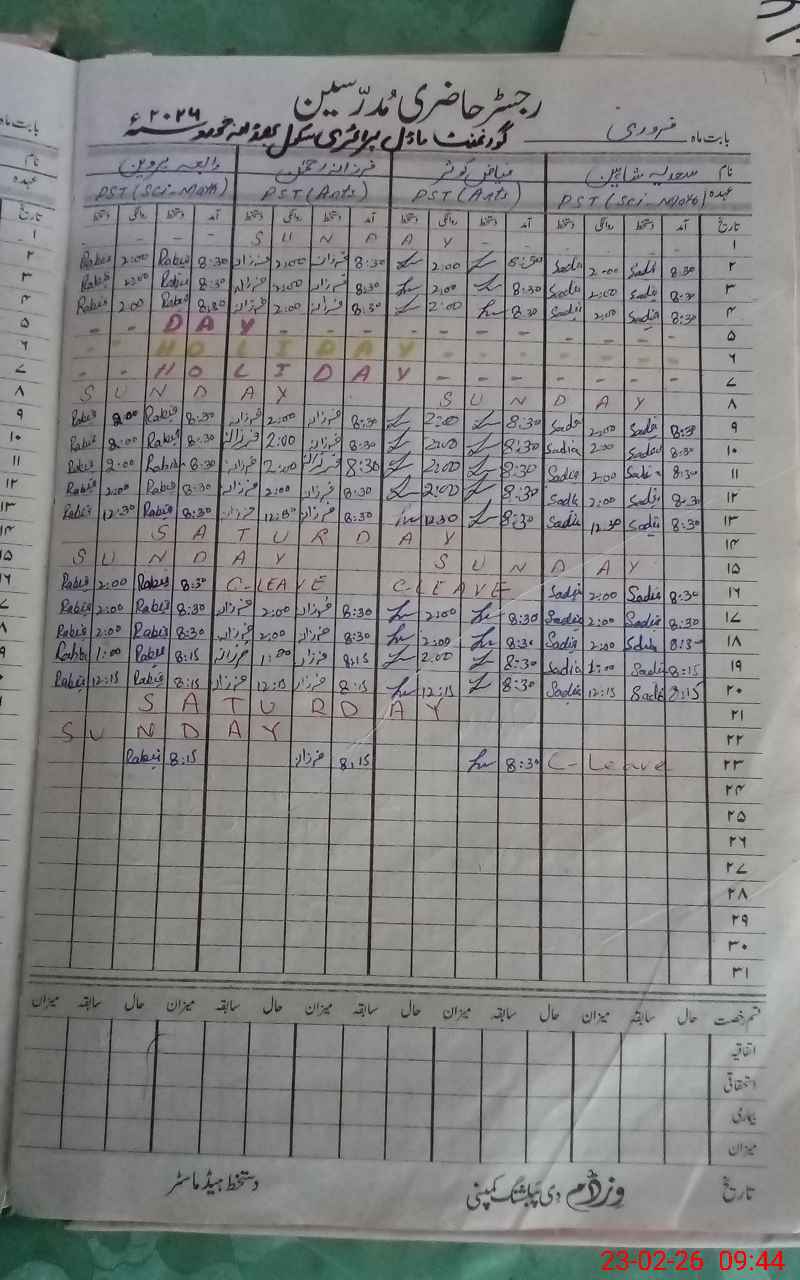 رجسٹر حاضری مُدرّسین
بابت ماہ فروری گورنمنٹ ماڈل پرائمری سکول سنہ ۲۰۲۶ء
نام سعدیہ شاہین فیاض کوثر فرزانہ رحمٰن رابعہ پروین
عہدہ PST (Sci-Math) PST (Arts) PST (Arts) PST (Sci-Math)
تاریخ آمد دستخط روانگی دستخط آمد دستخط روانگی دستخط آمد دستخط روانگی دستخط آمد دستخط روانگی دستخط
۱ - - - - S U N D A Y - -
۲ 8:30 Sadia 2:00 Sadia 8:30 2:00 8:30 فرزانہ 2:00 فرزانہ 8:30 Rabia 2:00 Rabia
۳ 8:30 Sadia 2:00 Sadia 8:30 2:00 8:30 فرزانہ 2:00 فرزانہ 8:30 Rabia 2:00 Rabia
۴ 8:30 Sadia 2:00 Sadia 8:30 2:00 8:30 فرزانہ 2:00 فرزانہ 8:30 Rabia 2:00 Rabia
۵ - - D A Y - - - - - - - -
۶ - - H O L I D A Y - - - -
۷ - - H O L I D A Y - - - -
۸ S U N D A Y S U N D A Y
۹ 8:30 Sadia 2:00 Sadia 8:30 2:00 8:30 فرزانہ 2:00 فرزانہ 8:30 Rabia 2:00 Rabia
۱۰ 8:30 Sadia 2:00 Sadia 8:30 2:00 8:30 فرزانہ 2:00 فرزانہ 8:30 Rabia 2:00 Rabia
۱۱ 8:30 Sadia 2:00 Sadia 8:30 2:00 8:30 فرزانہ 2:00 فرزانہ 8:30 Rabia 2:00 Rabia
۱۲ 8:30 Sadia 2:00 Sadia 8:30 2:00 8:30 فرزانہ 2:00 فرزانہ 8:30 Rabia 2:00 Rabia
۱۳ 8:30 Sadia 12:30 Sadia 8:30 12:30 8:30 فرزانہ 12:30 فرزانہ 8:30 Rabia 12:30 Rabia
۱۴ S A T U R D A Y
۱۵ S U N D A Y S U N D A Y
۱۶ 8:30 Sadia 2:00 Sadia C-LEAVE C-LEAVE 8:30 Rabia 2:00 Rabia
۱۷ 8:30 Sadia 2:00 Sadia 8:30 2:00 8:30 فرزانہ 2:00 فرزانہ 8:30 Rabia 2:00 Rabia
۱۸ 8:30 Sadia 2:00 Sadia 8:30 2:00 8:30 فرزانہ 2:00 فرزانہ 8:30 Rabia 2:00 Rabia
۱۹ 8:15 Sadia 1:00 Sadia 8:30 2:00 8:15 فرزانہ 1:00 فرزانہ 8:15 Rabia 1:00 Rabia
۲۰ 8:15 Sadia 12:15 Sadia 8:30 12:15 8:15 فرزانہ 12:15 فرزانہ 8:15 Rabia 12:15 Rabia
۲۱ S A T U R D A Y
۲۲ S U N D A Y
۲۳ C-Leave 8:30 8:15 فرزانہ 8:15 Rabia
۲۴
۲۵
۲۶
۲۷
۲۸
۲۹
۳۰
۳۱
قسم رخصت حال سابقہ میزان حال سابقہ میزان حال سابقہ میزان حال سابقہ میزان
اتفاقیہ
استحقاقی
بیماری
میزان
تاریخ وزڈم دی پبلشنگ کمپنی دستخط ہیڈ ماسٹر
23-02-26 09:44